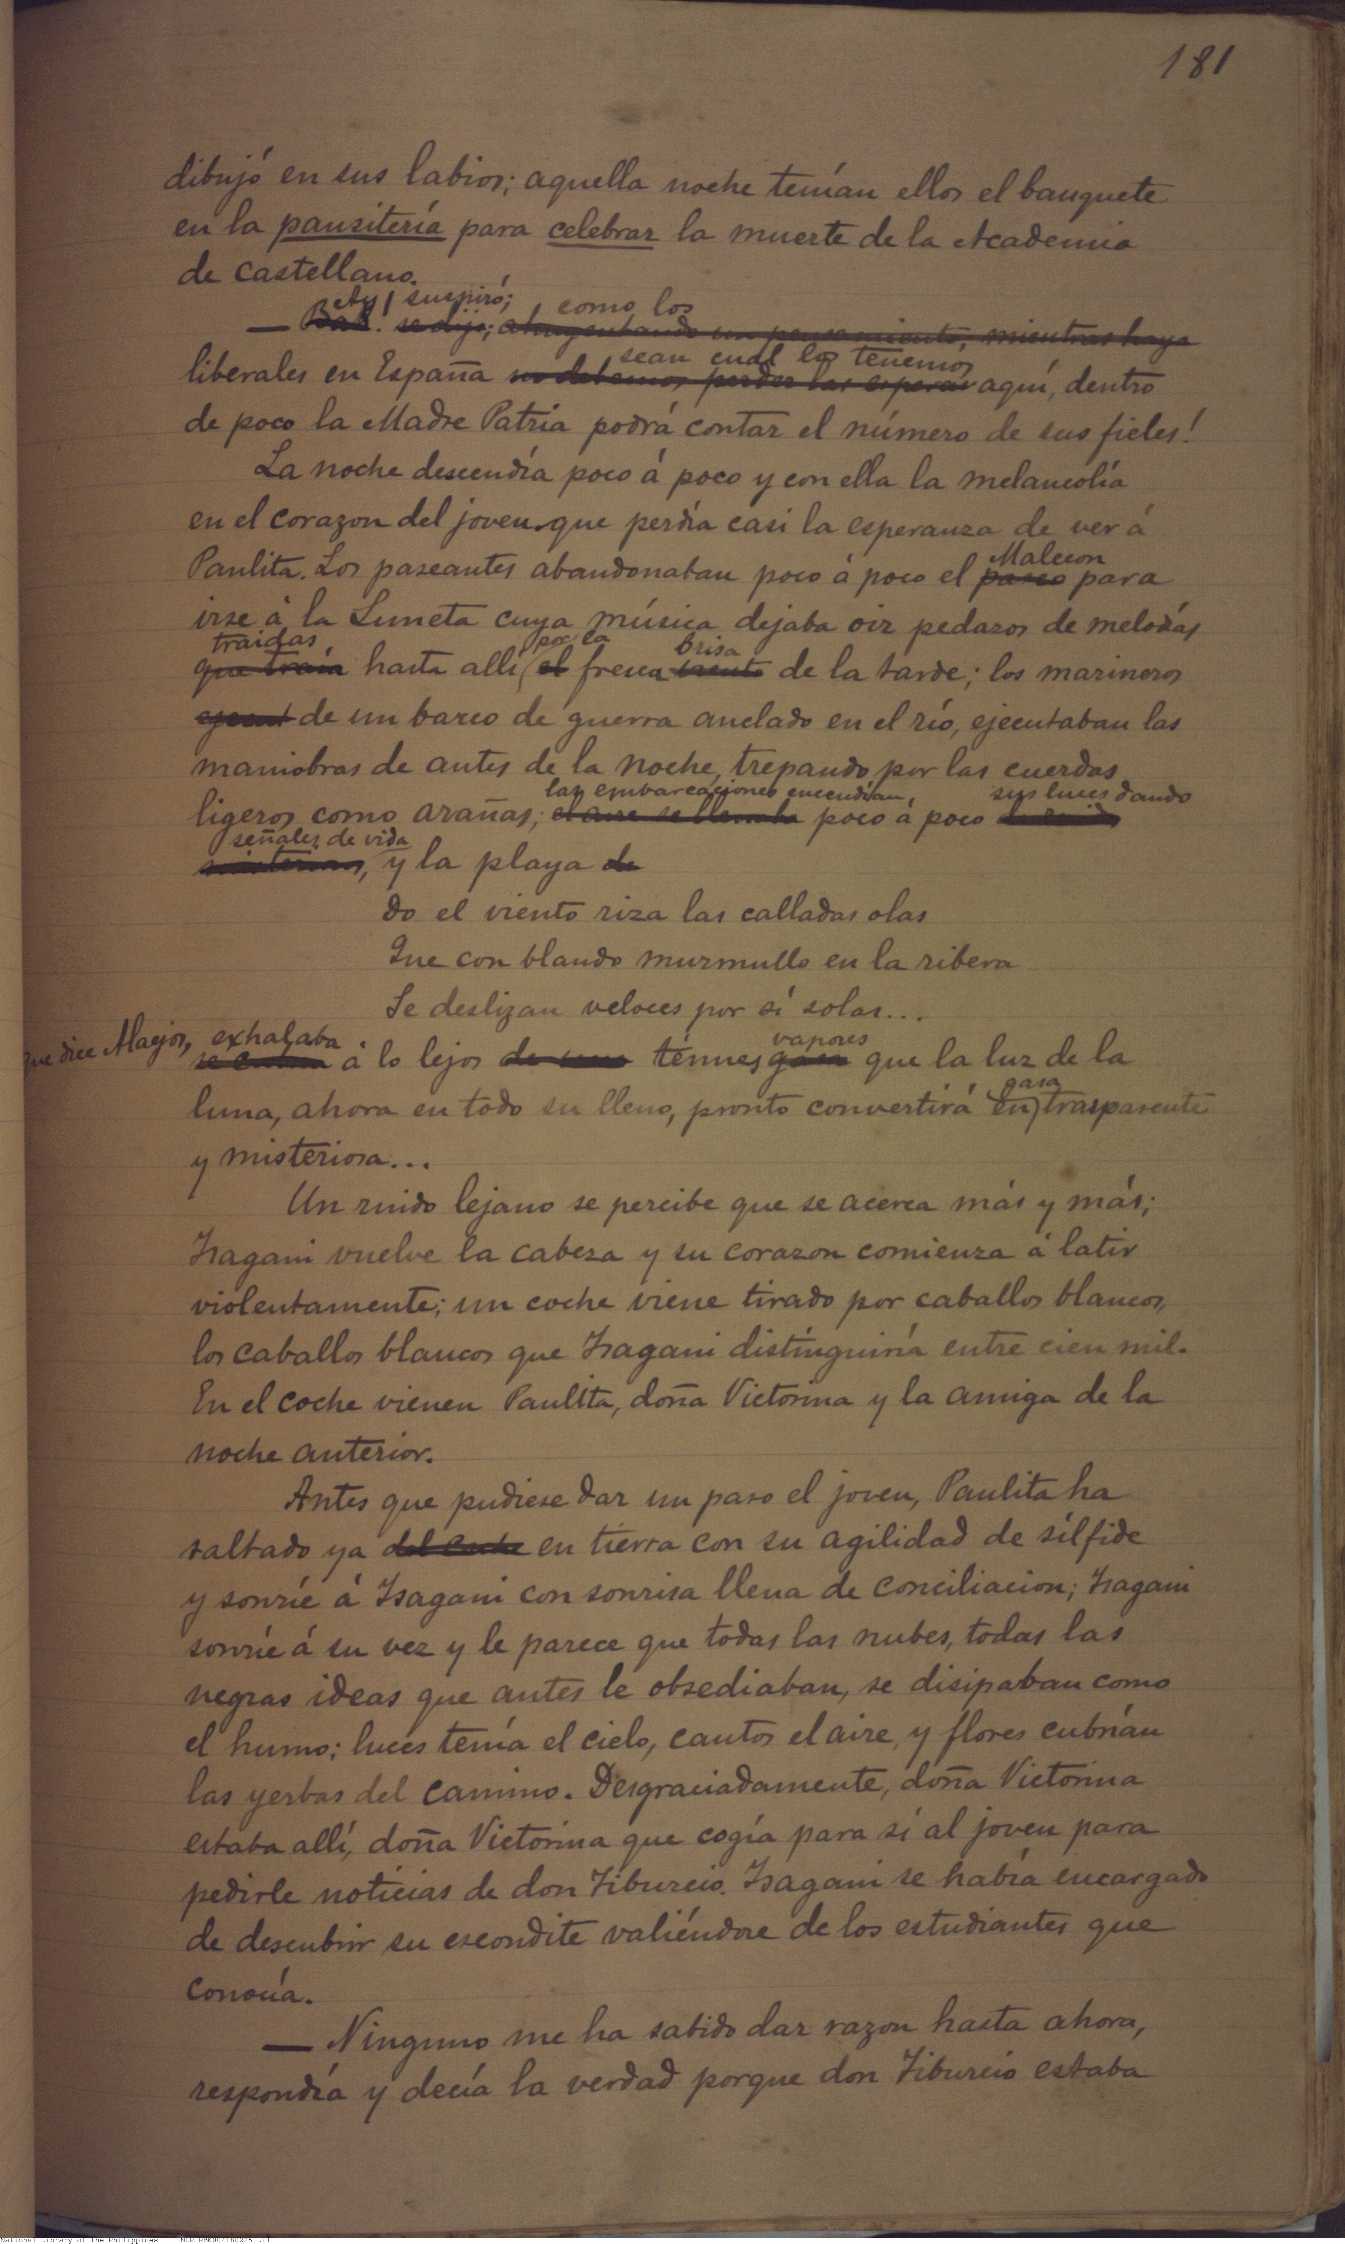 181
dibujó en sus labios; aquella noche tenían ellos el banquete
en la pansitería para celebrar la muerte de la Academia
de castellano.
Ay! suspiró; como los
— Bah! se dijo; ahuyentando un pensamiento, mientras haya
sean cual los tenemos
liberales en España no debemos perder las esperan aquí, dentro
de poco la Madre Patria podrá contar el número de sus fieles!
La noche descendía poco á poco y con ella la melancolía
en el corazon del joven que perdía casi la esperanza de ver á
Malecon
Paulita. Los paseantes abandonaban poco á poco el paseo para
irse á la Luneta cuya música dejaba oir pedazos de melodías
traidas por la brisa
que traía hasta allí el fresca viento de la tarde; los marineros
ejecut de un barco de guerra anclado en el río, ejecutaban las
maniobras de antes de la noche, trepando por las cuerdas
las embarcaciones encendían sus luces dando
ligeros como arañas; el aire se llenaba poco á poco
señales de vida
y la playa de
do el viento riza las calladas olas
Que con blando murmullo en la ribera
Se deslizan veloces por sí solas...
que dice Alaejos, exhalaba vapores
á lo lejos ténues gasa que la luz de la
gasa
luna, ahora en todo su lleno, pronto convertirá en trasparente
y misteriosa...
Un ruido lejano se percibe que se acerca más y más;
Isagani vuelve la cabeza y su corazon comienza á latir
violentamente; un coche viene tirado por caballos blancos,
los caballos blancos que Isagani distinguiría entre cien mil.
En el coche vienen Paulita, doña Victorina y la amiga de la
noche anterior.
Antes que pudiese dar un paso el joven, Paulita ha
saltado ya del coche en tierra con su agilidad de sílfide
y sonríe á Isagani con sonrisa llena de conciliacion; Isagani
sonríe á su vez y le parece que todas las nubes, todas las
negras ideas que antes le obsediaban, se disipaban como
el humo; luces tenía el cielo, cantos el aire, y flores cubrían
las yerbas del camino. Desgraciadamente, doña Victorina
estaba allí, doña Victorina que cogía para sí al joven para
pedirle noticias de don Tiburcio. Isagani se había encargado
de descubrir su escondite valiéndose de los estudiantes que
conocía.
— Ninguno me ha sabido dar razon hasta ahora,
respondía y decía la verdad porque don Tiburcio estaba